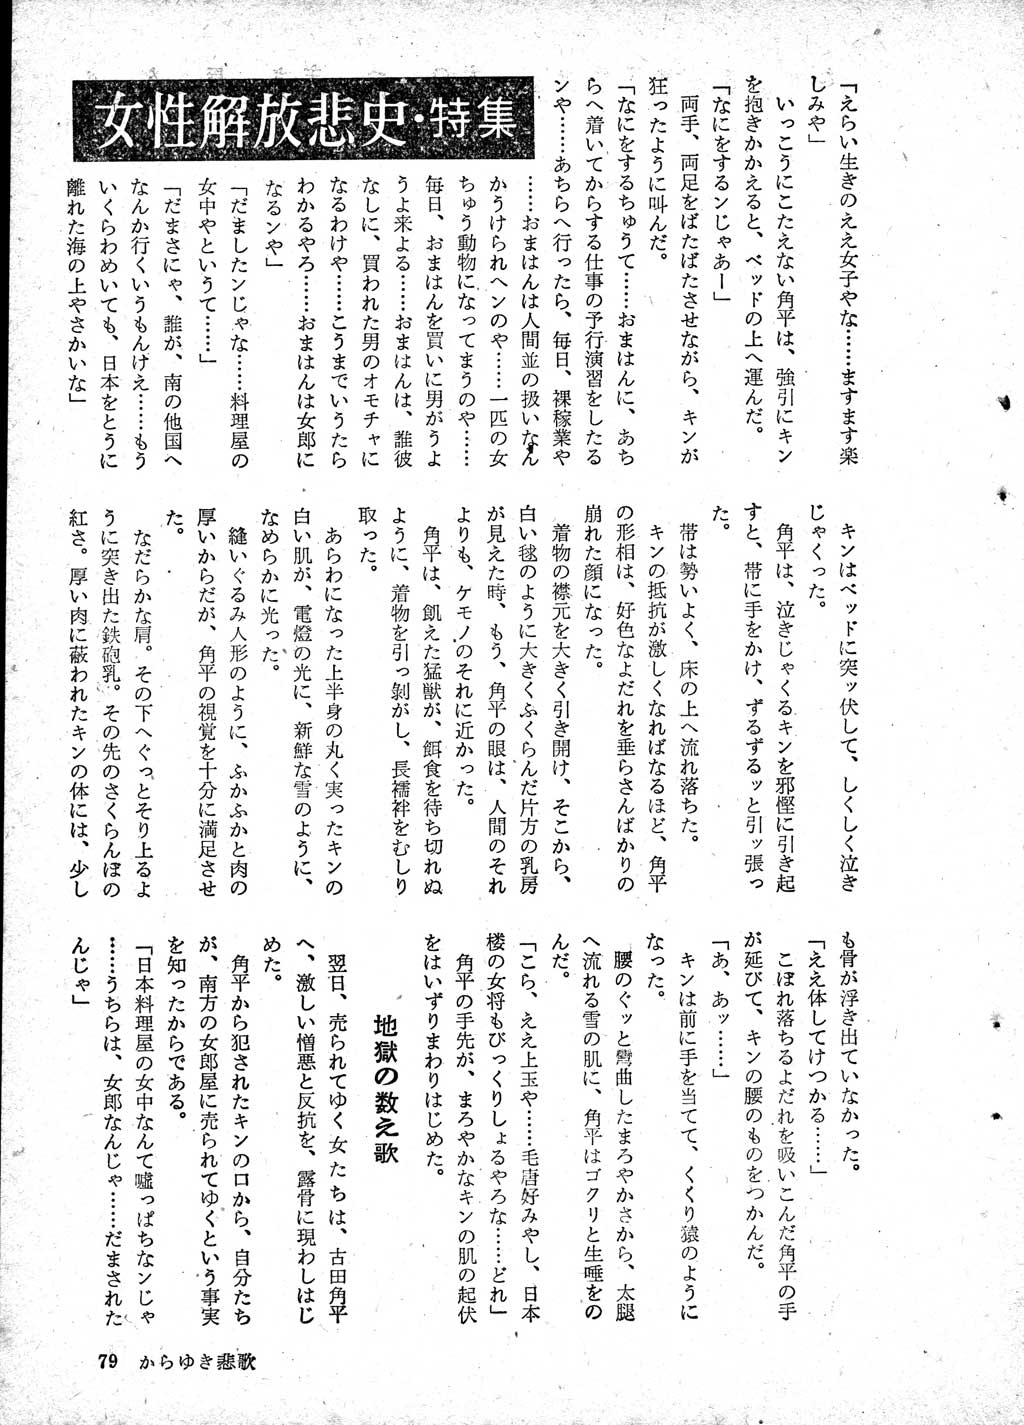 女性解放悲史・特集
「えらい生きのええ女子やな……ますます楽
しみや」
いっこうにこたえない角平は、強引にキン
を抱きかかえると、ベッドの上へ運んだ。
「なにをするンじゃあー」
両手、両足をばたばたさせながら、キンが
狂ったように叫んだ。
「なにをするちゅうて……おまはんに、あち
らへ着いてからする仕事の予行演習をしたる
ンや……あちらへ行ったら、毎日、裸稼業や
……おまはんは人間並の扱いなん
かうけられヘンのや……一匹の女
ちゅう動物になってまうのや……
毎日、おまはんを買いに男がうよ
うよ来よる……おまはんは、誰彼
なしに、買われた男のオモチャに
なるわけや……こうまでいうたら
わかるやろ……おまはんは女郎に
なるンや」
「だましたンじゃな……料理屋の
女中やというて……」
「だまさにゃ、誰が、南の他国へ
なんか行くいうもんけえ……もう
いくらわめいても、日本をとうに
離れた海の上やさかいな」
キンはベッドに突ッ伏して、しくしく泣き
じゃくった。
角平は、泣きじゃくるキンを邪慳に引き起
すと、帯に手をかけ、ずるずるッと引ッ張っ
た。
帯は勢いよく、床の上へ流れ落ちた。
キンの抵抗が激しくなればなるほど、角平
の形相は、好色なよだれを垂らさんばかりの
崩れた顔になった。
着物の襟元を大きく引き開け、そこから、
白い毬のように大きくふくらんだ片方の乳房
が見えた時、もう、角平の眼は、人間のそれ
よりも、ケモノのそれに近かった。
角平は、飢えた猛獣が、餌食を待ち切れぬ
ように、着物を引っ剝がし、長襦袢をむしり
取った。
あらわになった上半身の丸く実ったキンの
白い肌が、電燈の光に、新鮮な雪のように、
なめらかに光った。
縫いぐるみ人形のように、ふかふかと肉の
厚いからだが、角平の視覚を十分に満足させ
た。
なだらかな肩。その下へぐっとそり上るよ
うに突き出た鉄砲乳。その先のさくらんぼの
紅さ。厚い肉に蔽われたキンの体には、少し
も骨が浮き出ていなかった。
「ええ体してけつかる……」
こぼれ落ちるよだれを吸いこんだ角平の手
が延びて、キンの腰のものをつかんだ。
「あ、あッ……」
キンは前に手を当てて、くくり猿のように
なった。
腰のぐッと彎曲したまろやかさから、太腿
へ流れる雪の肌に、角平はゴクリと生唾をの
んだ。
「こら、ええ上玉や……毛唐好みやし、日本
楼の女将もびっくりしょるやろな……どれ」
角平の手先が、まろやかなキンの肌の起伏
をはいずりまわりはじめた。
地獄の数え歌
翌日、売られてゆく女たちは、古田角平
へ、激しい憎悪と反抗を、露骨に現わしはじ
めた。
角平から犯されたキンの口から、自分たち
が、南方の女郎屋に売られてゆくという事実
を知ったからである。
「日本料理屋の女中なんて嘘っぱちなンじゃ
……うちらは、女郎なんじゃ……だまされた
んじゃ」
79 からゆき悲歌